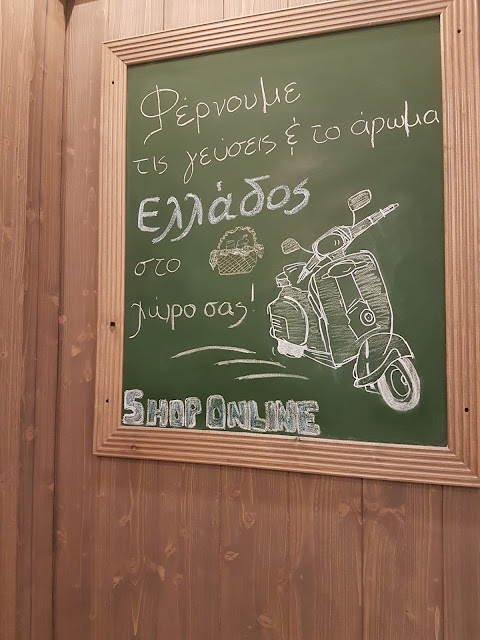 Φέρνουμε
τις γεύσεις & το άρωμα
Ελλάδος
στο
χώρο σας!
SHOP ONLINE